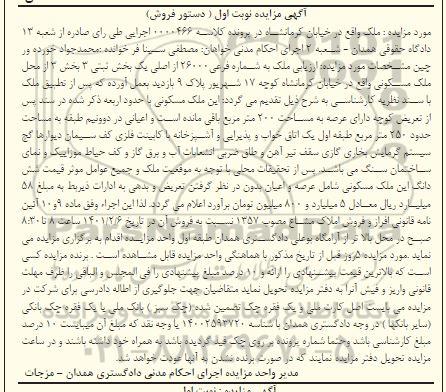 آگهی مزایده نوبت اول ( دستور فروش)
مورد مزایده : ملک واقع در خیابان کرمانشاه در پرونده کلاسه ۰۰۰۰۴۶۶ اجرایی طی رای صادره از شعبه ۱۳
دادگاه حقوقی همدان - شعبه ۲ اجرای احکام مدنی خواهان: مصطفی سینا فر خوانده :محمدجواد خورده ور
چین مشخصات مورد مزایده: ارزیابی ملک به شماره فرعی ۲۶۰۰۰ از اصلی یک بخش ثبتی ۳ بخش ۳ از محل
ملک مسکونی واقع در خیابان کرمانشاه کوچه ۱۷ شهریور پلاک ۹ بازدید بعمل آورده که پس از تطبیق ملک
با سند نظریه کارشناسی به شرح ذیل تقدیم می گردد: این ملک مسکونی با حدود اربعه ذکر شده در سند پس
از تعریض کوچه دارای عرصه به مساحت ۲۰۰ متر مربع باقی مانده است و اعیانی در دوونیم طبقه به مساحت
حدود ۲۵۰ متر مربع طبقه اول یک اتاق خواب و پذیرایی و آشپزخانه با کابینت فلزی کف سیمان دیوارها گچ
سیستم گرمایش بخاری گازی سقف تیر آهن و طاق ضربی انشعابات آب و برق گاز و کف حیاط موزاییک و نمای
ساختمان سنگ می باشد. پس از تحقیقات محلی با توجه به موقعیت ملک و جمیع عوامل موثر قیمت شش
دانگ این ملک مسکونی شامل عرصه و اعیان بدون در نظر گرفتن تعریض و بدهی به ادارات ذیربط به مبلغ ۵۸
میلیارد ریال معادل ۵ میلیارد و ۸۰۰ میلیون تومان برآورد اعلام می گردد. لذا این اجراء وفق ماده ۹و۱۰ آئین
نامه قانونی افراز و فروش املاک مشاع مصوب ۱۳۵۷ نسبت به فروش آن در تاریخ ۱۴۰۱/۲/۶ ساعت ۸ تا۸:۳۰
صبح در محل بالا تر از آرامگاه بوعلی دادگستری همدان طبقه اول واحد مزایده اقدام به برگزاری مزایده می
نماید .مورد مزایده ۵روز قبل از تاریخ مذکور با هماهنگی واحد مزایده قابل مشاهده است . برنده مزایده کسی
است که بالاترین قیمت پیشنهادی را ارائه و ۱۰ درصد مبلغ پیشنهادی را فی المجلس و الباقی را ظرف مهلت
قانونی واریز و فیش آنرا به دفتر مزایده تحویل نماید متقاضیان جهت جلوگیری از اطاله دادرسی برای شرکت در
مزایده می بایست اصل کارت ملی و یک فقره چک تضمین شده (چک سبز ) بانک ملی یا یک فقره چک بانکی
(سایر بانکها ) در وجه دادگستری همدان با شناسه ۱۴۰۰۲۵۹۳۷۲۰ یا وجه نقد که مبلغ آن میبایست ۱۰ درصد
مبلغ کارشناسی باشد وحتما شماره پرونده بر روی چک قید گردیده باشد به همراه خود داشته باشند و در ساعت
مزایده تحویل دفتر مزایده نمایند که در صورت برنده نشدن به آنها عودت خواهد شد.
مدیر واحد مزایده اجرای احکام مدنی دادگستری همدان - مزجات
آگهی مزایده : نوبت اول